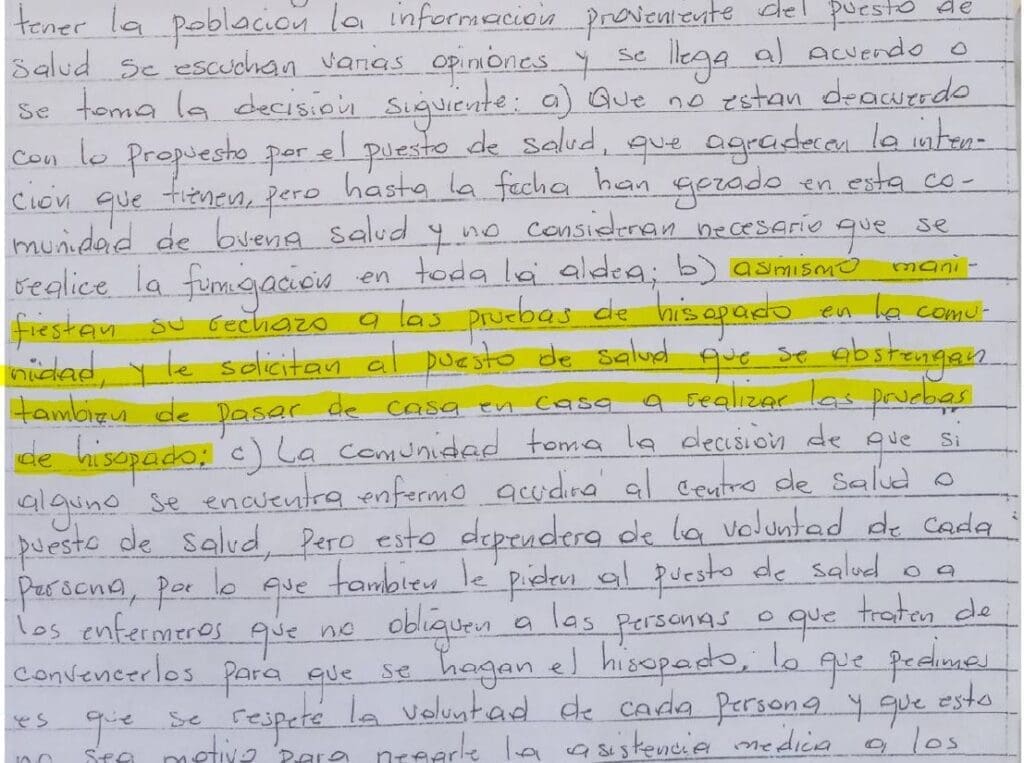 tener la población la información proveniente del puesto de
Salud se escuchan varias opiniónes y se llega al acuerdo o
se toma la decisión siguiente: a) Que no estan deacuerdo
con lo propuesto por el puesto de salud, que agradecen la inten-
ción que tienen, pero hasta la fecha han gozado en esta co-
munidad de buena salud y no consideran necesario que se
realice la fumigación en toda la aldea; b) asimismo mani-
fiestan su rechazo a las pruebas de hisopado en la comu-
nidad, y le solicitan al puesto de salud que se abstengan
tambien de pasar de casa en casa a realizar las pruebas
de hisopado; c) La comunidad toma la decisión de que si
alguno se encuentra enfermo acudirá al centro de salud o
puesto de salud, pero esto dependera de la voluntad de cada
persona, por lo que tambien le piden al puesto de salud o a
los enfermeros que no obliguen a las personas o que traten de
convencerlos para que se hagan el hisopado, lo que pedimos
es que se respete la voluntad de cada persona y que esto
no sea motivo para negarle la asistencia medicia a los